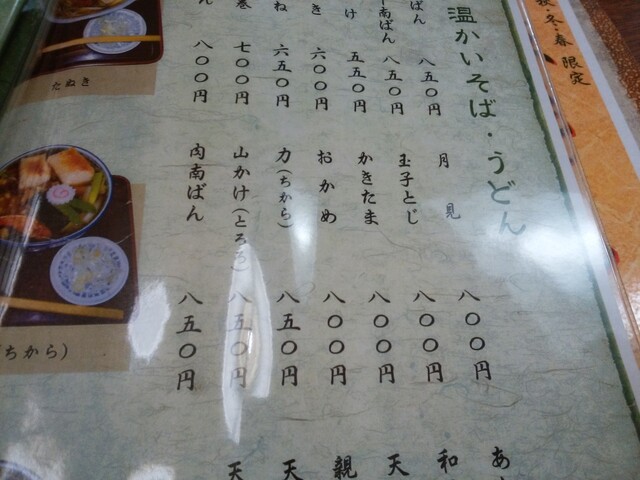 秋・冬・春 限定
温かいそば・うどん
ばん 八五〇円
南ばん 八五〇円
け 五五〇円
き 六〇〇円
ね 六五〇円
巻 七〇〇円
ん 八〇〇円
月見 八〇〇円
玉子とじ 八〇〇円
かきたま 八〇〇円
おかめ 八〇〇円
力(ちから) 八五〇円
山かけ(とろろ) 八五〇円
肉南ばん 八五〇円
あ
和
天
親
天
天
たぬき
ちから)